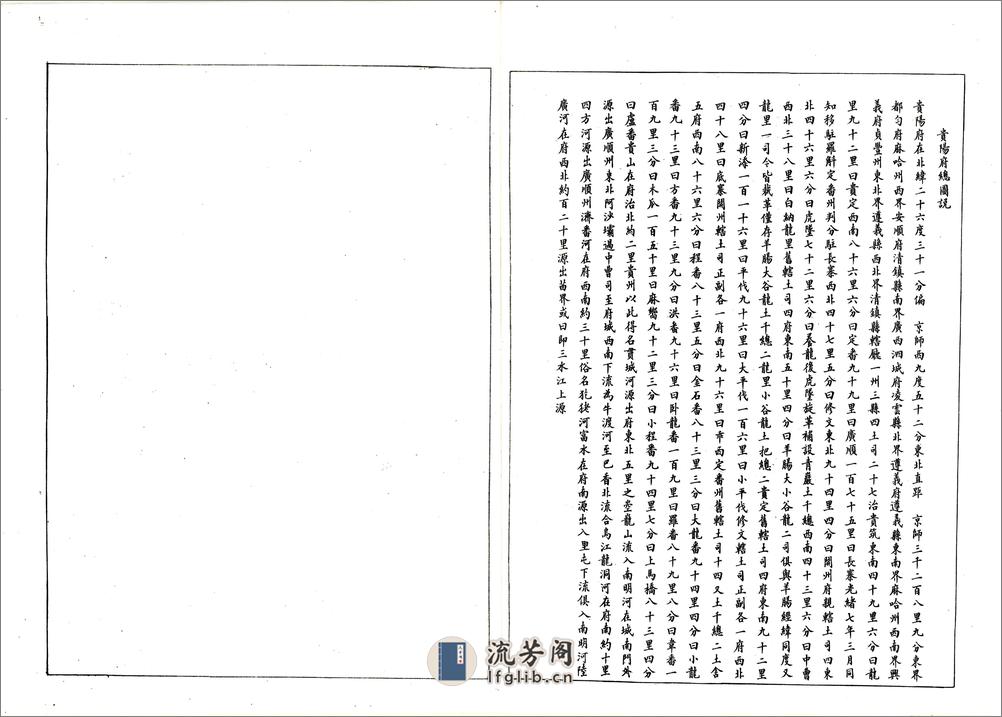 貴陽府總圖說
貴陽府在北緯二十六度三十一分偏 京師西九度五十二分東北直距 京師三千二百八里九分東界
都勻府麻哈州西界安順府清鎮縣南界廣西泗城府凌雲縣北界遵義府遵義縣東南界麻哈州西南界興
義府貞豐州東北界遵義縣西北界清鎮縣轄廳一州三縣四土司二十七治貴筑東南四十九里六分曰龍
里九十二里曰貴定西南八十六里六分曰定番九十九里曰廣順一百七十五里曰長寨光緒七年三月同
知移駐羅斛定番州判分駐長寨西北四十七里五分曰修文東北九十四里四分曰開州府親轄土司四東
北四十六里六分曰虎墜七十二里六分曰養龍後虎墜旋革補設青巖土千總西南四十三里六分曰中曹
西北三十八里曰白納龍里舊轄土司四府東南五十里四分曰羊腸大小谷龍二司俱與羊腸經緯同度又
龍里一司今皆裁革僅存羊腸大谷龍土千總二龍里小谷龍土把總二貴定舊轄土司四府東南九十二里
四分曰新添一百一十六里曰平伐九十六里曰大平伐一百六里曰小平伐修文轄土司正副各一府西北
四十八里曰底寨開州轄土司正副各一府西北九十六里曰乖西定番州舊轄土司十四又土千總二土舍
五府西南八十六里六分曰程番八十三里五分曰金石番八十三里三分曰大龍番九十四里四分曰小龍
番九十三里曰方番九十三里九分曰洪番九十六里曰卧龍番一百九里曰羅番八十九里八分曰韋番一
百九里三分曰木瓜一百五十里曰麻嚮九十二里三分曰小程番九十四里七分曰上馬橋八十三里四分
曰盧番貴山在府治北約二里貴州以此得名貫城河源出府東北五里之壺龍山流入南明河在城南門外
源出廣順州東北阿沙壩過中曹司至府城西南下流為牛渡河至巴香北流合烏江龍洞河在府南約十里
四方河源出廣順州濟番河在府西南約三十里俗名犵狫河富水在府南源出八里屯下流俱入南明河陸
廣河在府西北約百二十里源出苗界或曰即三水江上源
流芳阁
lfglib.cn